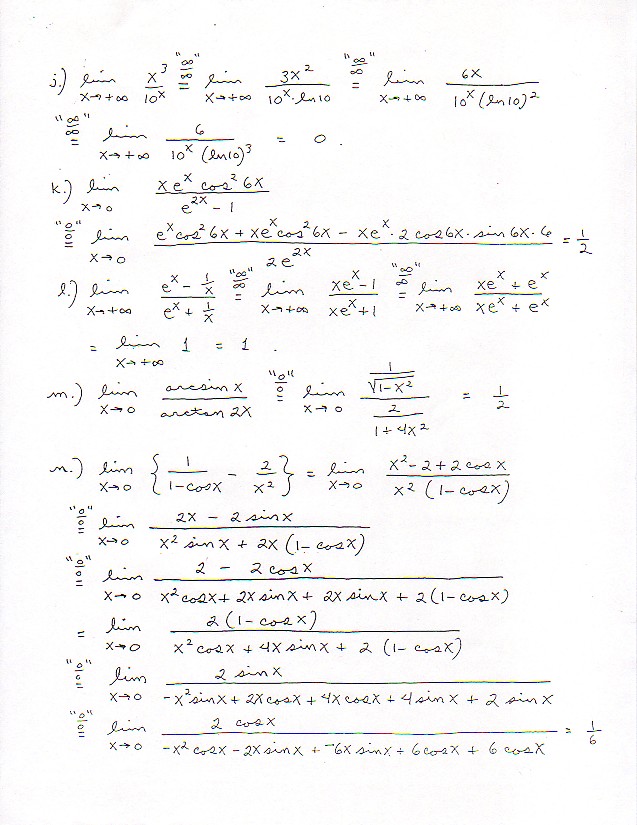 j.) lim x→+∞ x³/10ˣ "∞/∞" = lim x→+∞ 3x²/(10ˣ·ln10) "∞/∞" = lim x→+∞ 6x/(10ˣ(ln10)²)
"∞/∞" = lim x→+∞ 6/(10ˣ(ln10)³) = 0.
k.) lim x→0 (xeˣ cos² 6x)/(e²ˣ - 1)
"0/0" = lim x→0 (eˣcos² 6x + xeˣcos² 6x - xeˣ·2 cos6x·sin 6x·6)/(2e²ˣ) = 1/2
l.) lim x→+∞ (eˣ - 1/x)/(eˣ + 1/x) "∞/∞" = lim x→+∞ (xeˣ-1)/(xeˣ+1) "∞/∞" = lim x→+∞ (xeˣ + eˣ)/(xeˣ + eˣ)
= lim x→+∞ 1 = 1.
m.) lim x→0 (arcsin x)/(arctan 2x) "0/0" = lim x→0 (1/√(1-x²))/(2/(1+4x²)) = 1/2
n.) lim x→0 {1/(1-cosx) - 2/x²} = lim x→0 (x²-2+2cosx)/(x²(1-cosx))
"0/0" = lim x→0 (2x - 2sinx)/(x² sinx + 2x(1-cosx))
"0/0" = lim x→0 (2 - 2cosx)/(x²cosx + 2x sinx + 2x sinx + 2(1-cosx))
= lim x→0 2(1-cosx)/(x² cosx + 4x sinx + 2(1-cosx))
"0/0" = lim x→0 (2 sinx)/(-x²sinx + 2xcosx + 4xcosx + 4sinx + 2 sinx)
"0/0" = lim x→0 (2 cosx)/(-x² cosx - 2x sinx + -6x sinx + 6cosx + 6 cosx) = 1/6